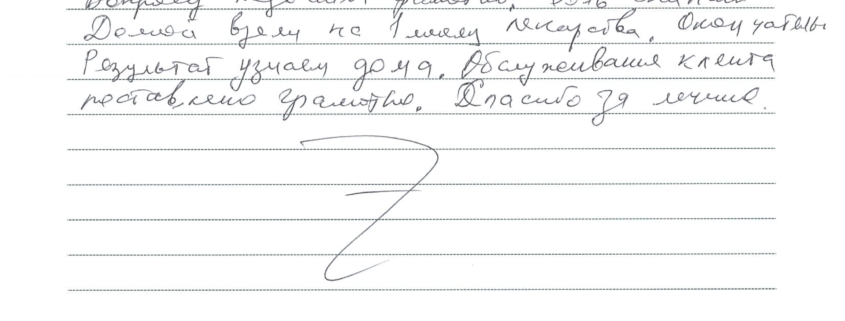 Домой взяли на 1 месяц лекарства. Окончательны
Результат узнаем дома. Обслуживания клиента
поставлено грамотно. Спасибо за лечение.